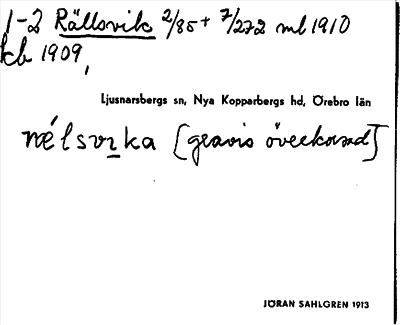 1-2 Rällsvik 2/85 + 7/272 ml 1910
kb 1909,
Ljusnarsbergs sn, Nya Kopparbergs hd, Örebro län
[gravis överkorsad]
JÖRAN SAHLGREN 1913